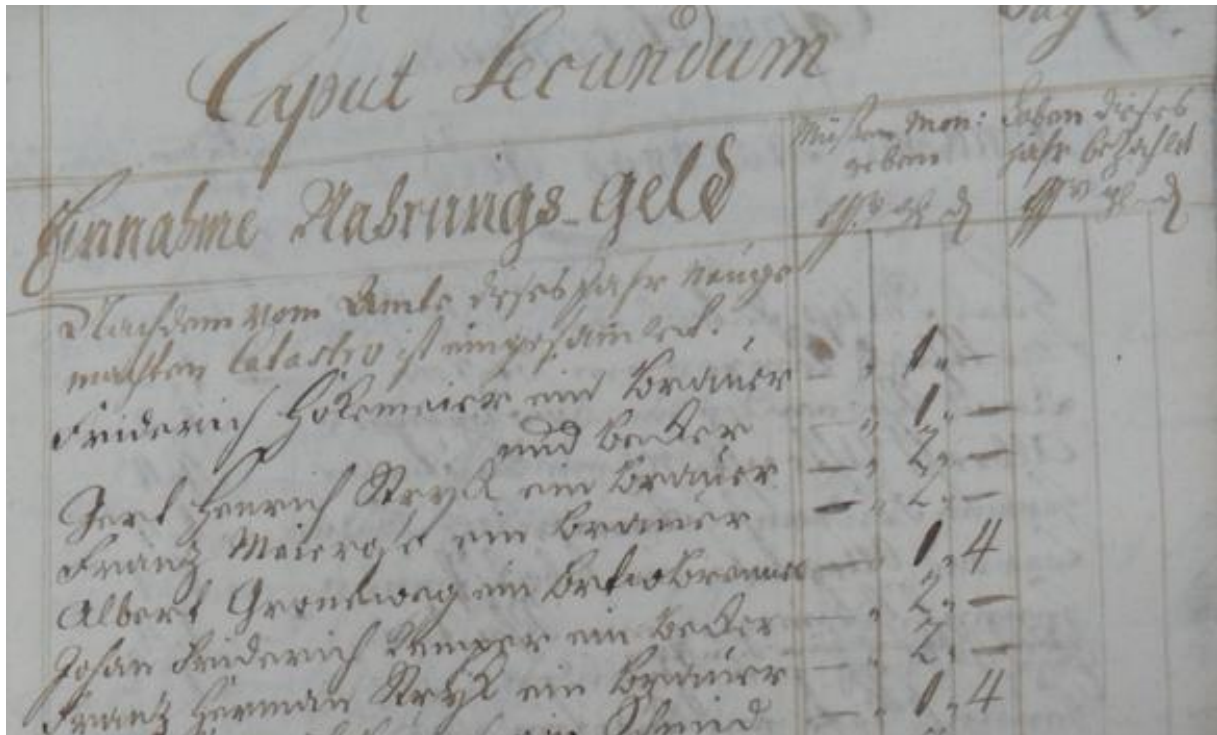 Caput Secundum
Einnahme Nahrungs-Geld
Müßen Mon:
geben
Haben dieses
Jahr bezahlt
Nachdem vom Ambte dieses Jahr neuge
machten Catastro ist eingesamlet.
Friderich Hökemeier ein Brauer — 1 —
und Becker — 1 —
Gert Henrich Stryk ein Brauer — 2 —
Frantz ein Brauer — 2 —
Albert Groneweg ein — 1 4
Johan Friderich Kemper ein Becker — 2 —
Frantz Herman Stryk ein Brauer — 2 —
ein Schmid — 1 4